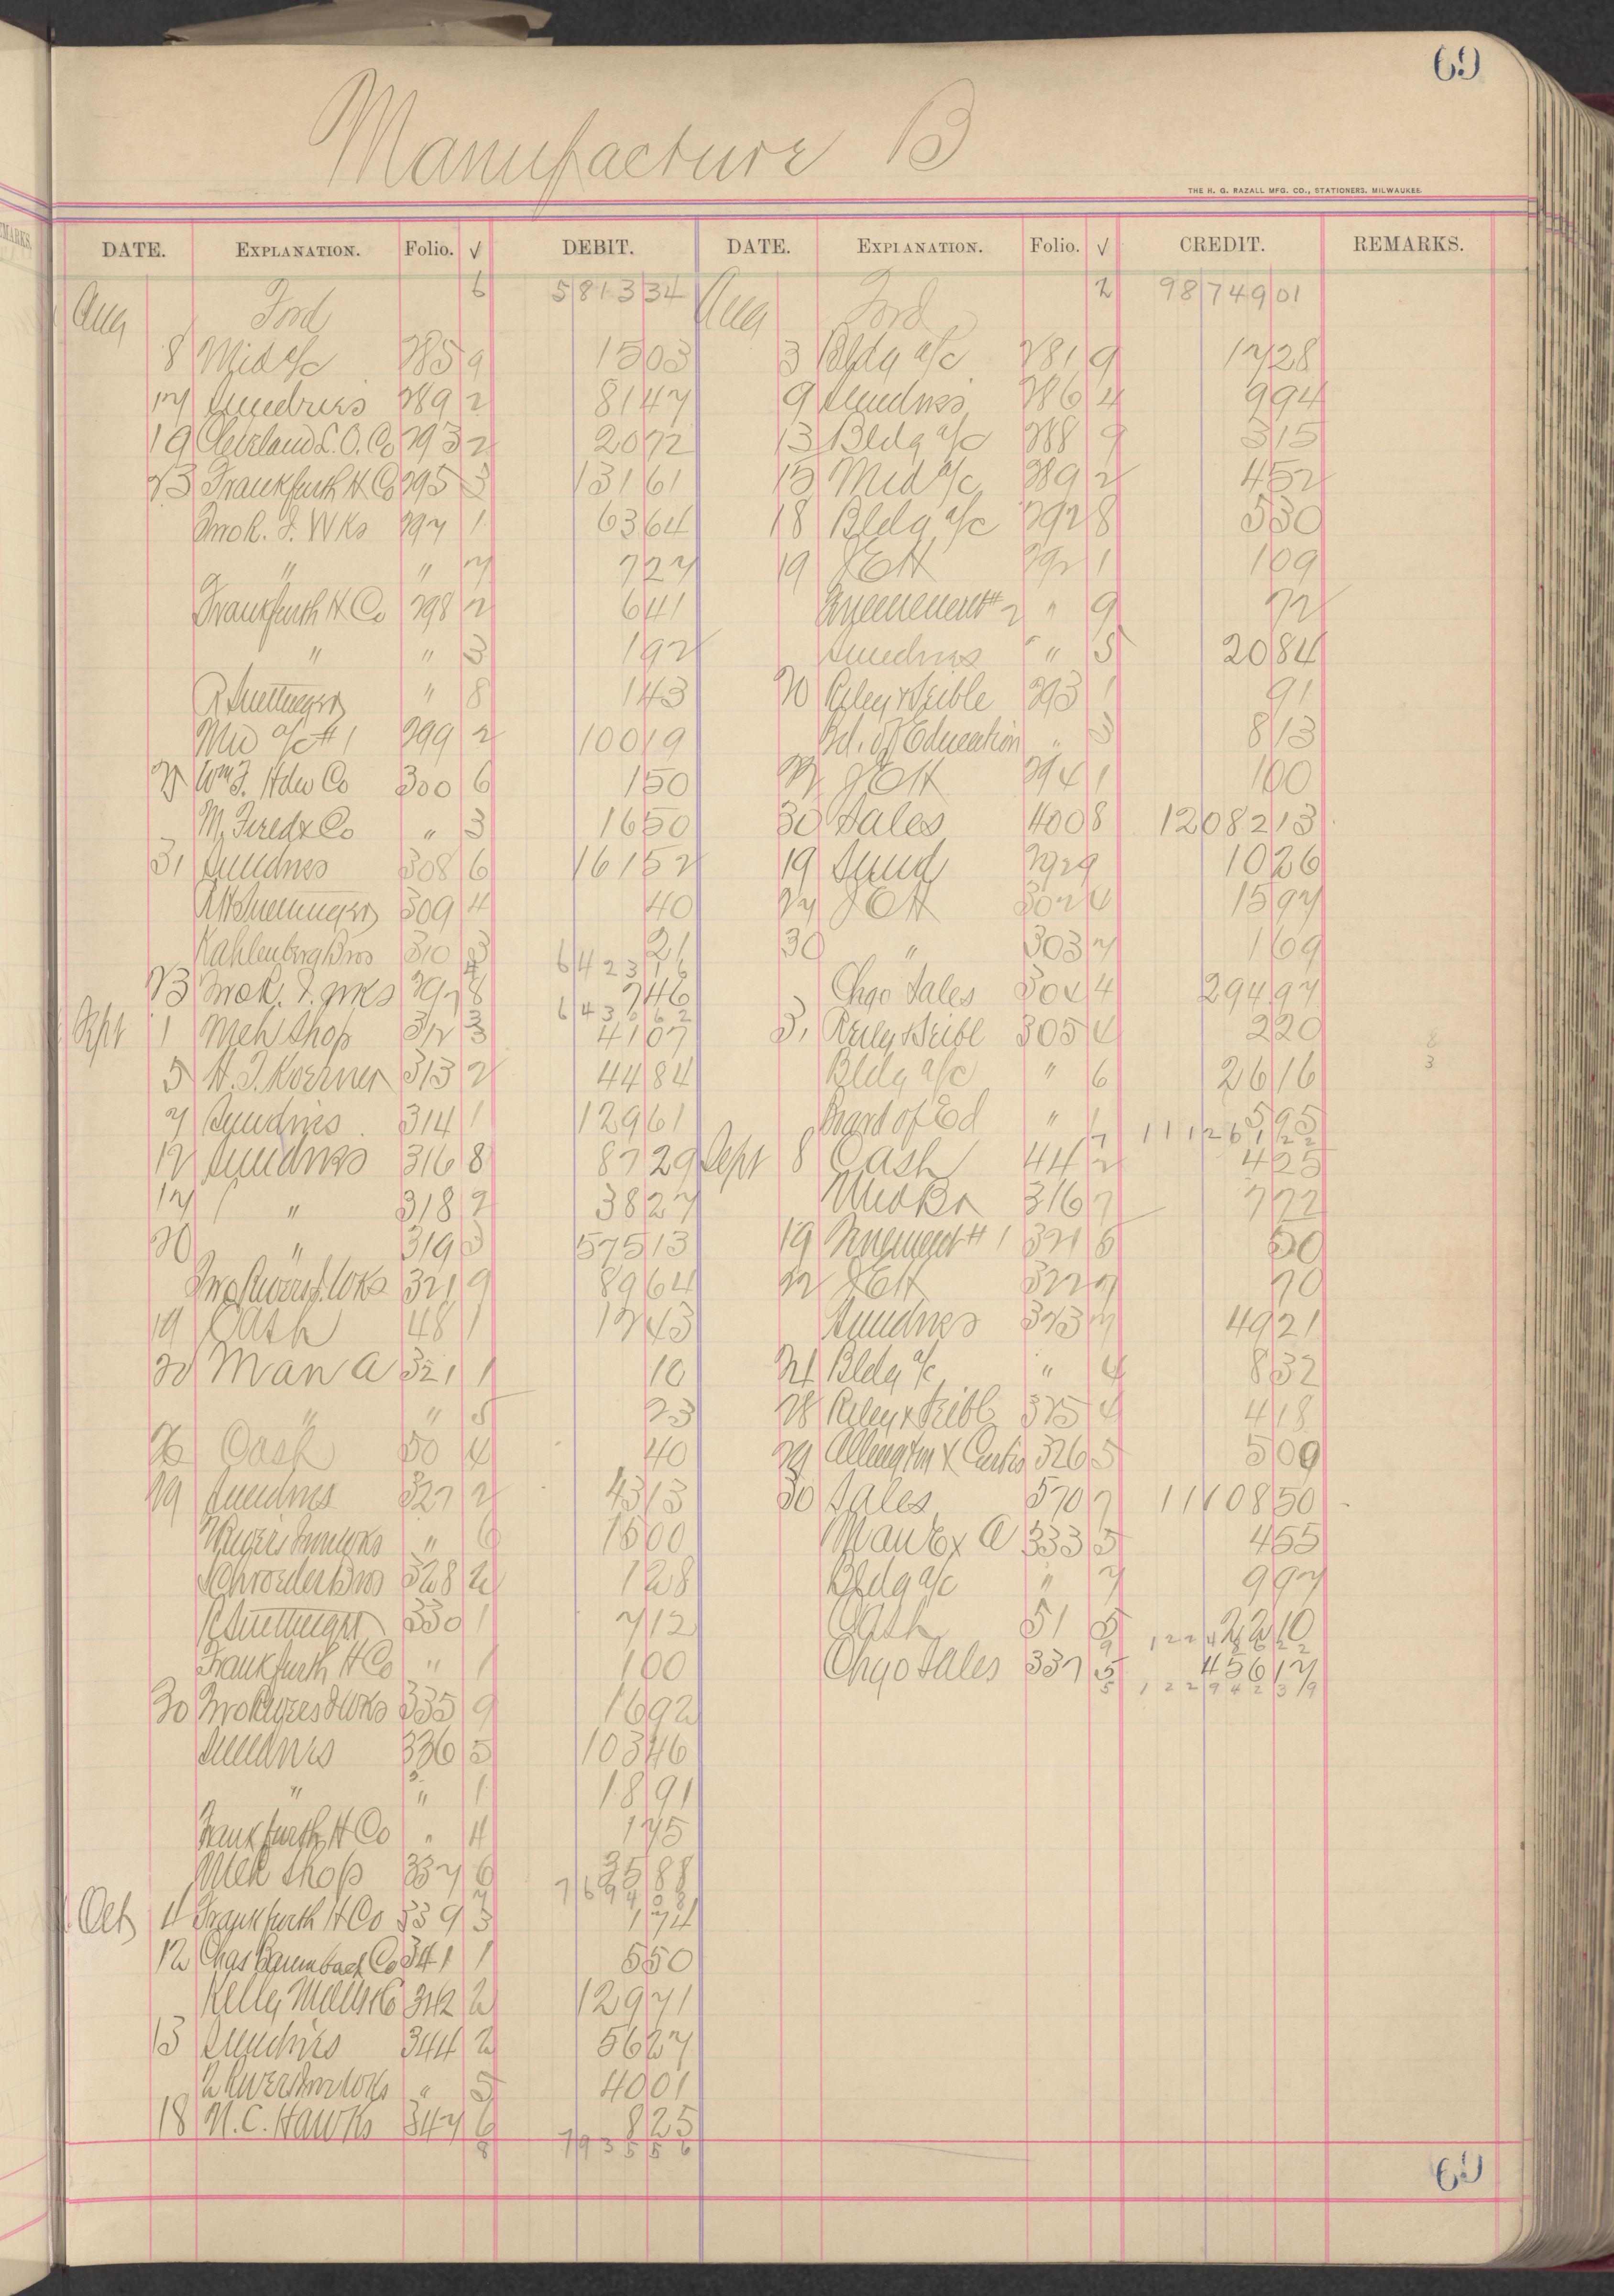 69
Manufacture B
THE H. G. RAZALL MFG. CO., STATIONERS. MILWAUKEE.
DATE. EXPLANATION. Folio. √ DEBIT. DATE. EXPLANATION. Folio. √ CREDIT. REMARKS.
Aug Ford 6 5813 34 Aug Ford 2 98749 01
8 Mid a/c 285 9 15 03 3 Bldg a/c 281 9 17 28
17 Sundries 289 2 81 47 9 Sundries 286 4 9 94
19 Cleveland L. O. Co 293 2 20 72 13 Bldg a/c 288 9 3 15
23 Frankfurth H Co 295 3 131 61 15 Mid a/c 289 2 4 52
Two R. I. Wks 297 1 63 64 18 Bldg a/c 292 8 5 30
" " 7 7 27 19 JEH 292 1 1 09
Frankfurth H Co 298 2 6 41 2 " 9 72
" " 3 1 92 Sundries " 5 20 84
" 8 1 43 20 Riley & Seible 293 1 91
Mid a/c #1 299 2 100 19 Bd. of Education " 3 8 13
25 Wm F. Hdw Co 300 6 1 50 22 JEH 294 1 1 00
& Co " 3 16 50 30 Sales 400 8 12082 13
31 Sundries 308 6 161 52 19 Sund 292 9 10 26
309 4 40 27 JEH 302 4 15 97
Kahlenberg Bros 310 3 21 30 " 303 7 1 69
6423 16
23 Two R. I. Wks 297 8 7 46 Chgo Sales 304 4 294 97
6430 62
Sept 1 Meh Shop 312 3 41 07 31 Riley & Seibl 305 4 2 20
5 H. J. Koerner 313 2 44 84 Bldg a/c " 6 26 16
7 Sundries 314 1 129 61 Board of Ed " 1 5 95
111261 22
12 Sundries 316 8 87 29 Sept 8 Cash 44 2 4 25
17 " 318 2 38 27 316 7 7 72
20 " 319 3 575 13 19 #1 321 5 50
Two Rivers I. Wks 321 9 89 64 22 JEH 322 7 70
19 Cash 48 1 12 43 Sundries 323 7 49 21
20 Man A 321 1 10 24 Bldg a/c " 4 8 32
" " 5 23 28 Riley & Seibl 325 4 4 18
26 Cash 50 4 40 29 Allington & Curtis 326 5 5 09
29 Sundries 327 2 43 13 30 Sales 570 7 11108 50
2 Rivers Iron Wks " 6 15 00 Man Ex A 333 5 4 55
Schroeder Bros 328 2 1 28 Bldg a/c " 7 9 97
330 1 7 12 Cash 51 5 22 10
Frankfurth H Co " 1 1 00 Chgo Sales 337 5 456 17
122942 39
30 Two Rivers I Wks 335 9 16 92
Sundries 336 5 103 46
" " 1 18 91
Frankfurth H Co " 4 1 75
Meh Shop 337 6 35 88
Oct 4 Frankfurth H Co 339 3 1 74
12 Chas Baumbach Co 341 1 5 50
Kelly 342 2 129 71
13 Sundries 344 2 56 27
2 Rivers Iron Wks " 5 40 01
18 N. C. Hawks 347 6 8 25
8 7935 56
69